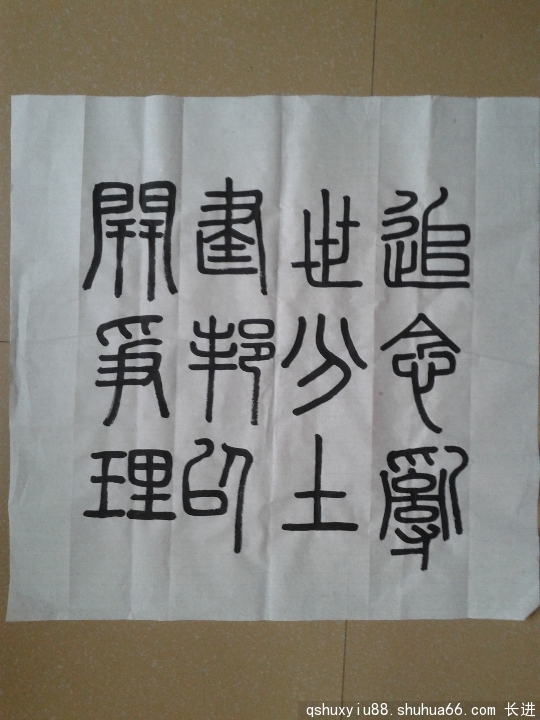 追念亂
世分土
建邦以
開爭理
qshuxyiu88.shuhua66.com 长进